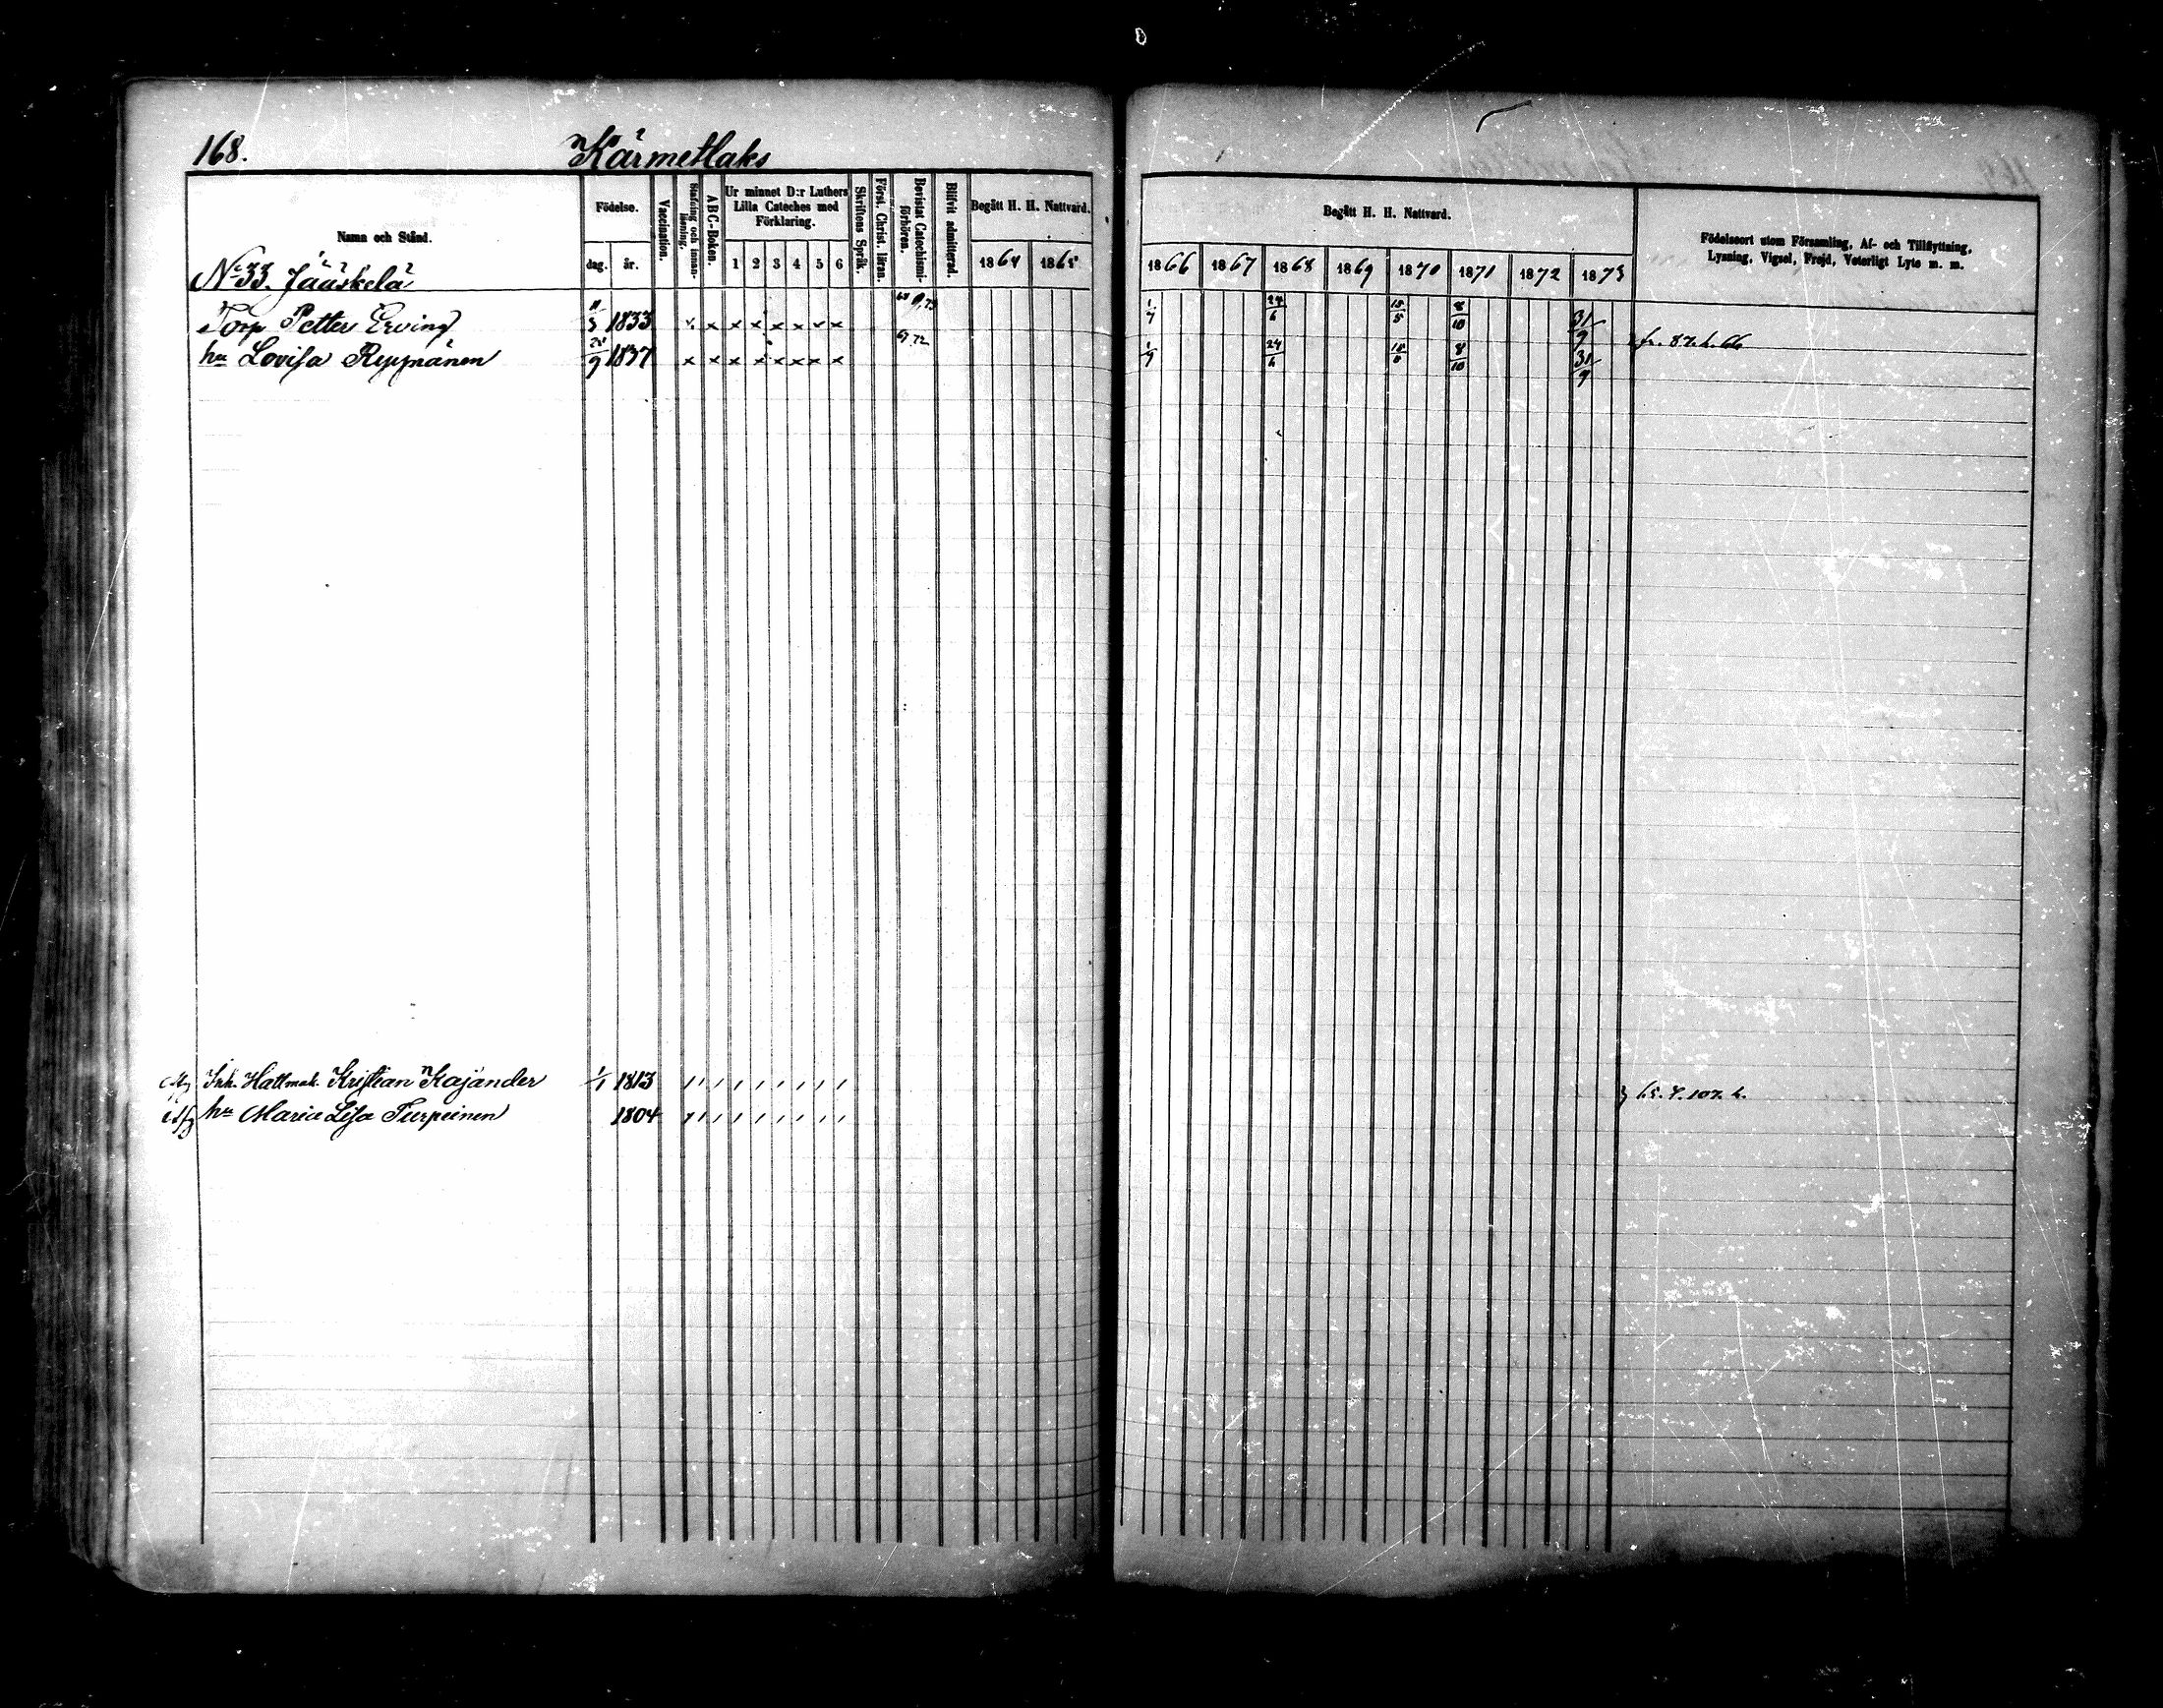 168. Kärmetlaks
Namn och Stånd.
Födelse.
dag. år.
Vaccination.
Stafning och innanläsning.
ABC-Boken.
Ur minnet D:r Luthers Lilla Cateches med Förklaring.
1 2 3 4 5 6
Skriftens Språk.
Först. Christ. läran.
Bevistat Catechismiförhören.
Blifvit admitterad.
Begått H. H. Nattvard.
1864 1865
Begått H. H. Nattvard.
1866 1867 1868 1869 1870 1871 1872 1873
Födelseort utom Församling, Af- och Tillflyttning,
Lysning, Vigsel, Frejd, Veterligt Lyte m. m.
No 33. Jääskelä
Torp Petter Erving 1833 x x x x x x x x 1/7 24/6 15/5 8/10 31/9
hu Lovisa Reppnänen 1837 x x x x x x x x 67,72 1/7 24/6 8/10 31/9
fr. 87. h. 66
Inh. Hattmak. Kristian Kajander 1/1 1813
hu Maria Lisa Turpeinen 1804
65. f. 107. h.